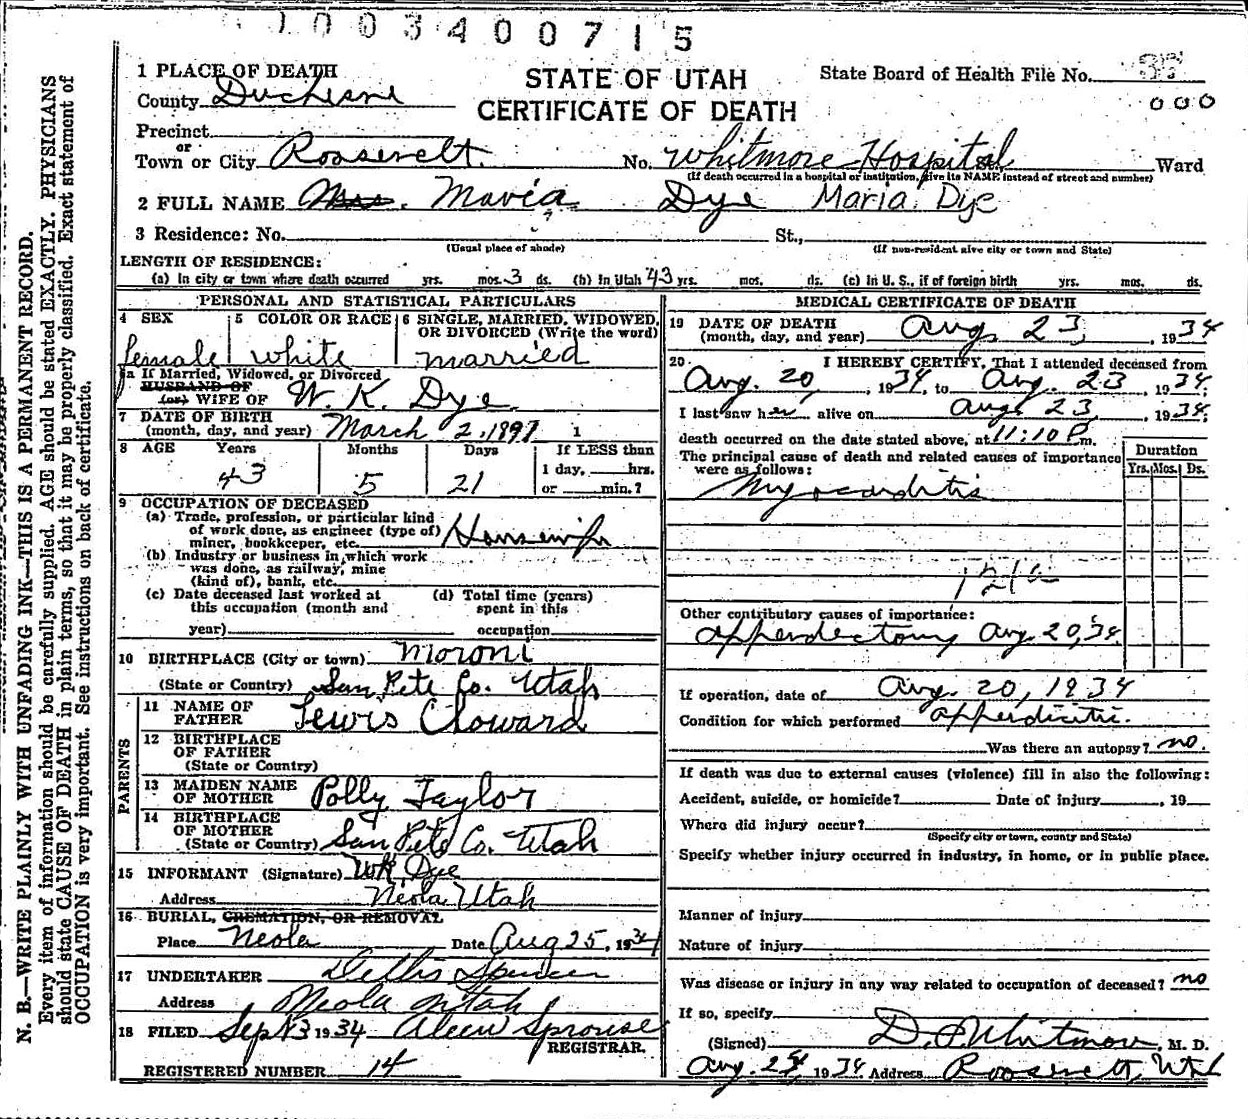 003400715
1 PLACE OF DEATH
STATE OF UTAH
State Board of Health File No.
County Duchesne
CERTIFICATE OF DEATH
000
Precinct
or
Town or City Roosevelt. No. Whitmore Hospital St., Ward
(If death occurred in a hospital or institution, give its NAME instead of street and number)
2 FULL NAME Mrs. Maria Dye Maria Dye
3 Residence: No. St.,
(Usual place of abode) (If non-resident give city or town and State)
LENGTH OF RESIDENCE:
(a) In city or town where death occurred yrs. mos. 3 ds. (b) In Utah 43 yrs. mos. ds. (c) In U. S., if of foreign birth yrs. mos. ds.
PERSONAL AND STATISTICAL PARTICULARS
4 SEX 5 COLOR OR RACE 6 SINGLE, MARRIED, WIDOWED, OR DIVORCED (Write the word)
female white married
5a If Married, Widowed, or Divorced
HUSBAND OF
(or) WIFE OF W. K. Dye
7 DATE OF BIRTH
(month, day, and year) March 2, 1891
8 AGE Years Months Days If LESS than
43 5 21 1 day, hrs.
or min.?
9 OCCUPATION OF DECEASED
(a) Trade, profession, or particular kind
of work done, as engineer (type of)
miner, bookkeeper, etc. Housewife
(b) Industry or business in which work
was done, as railway, mine
(kind of), bank, etc.
(c) Date deceased last worked at (d) Total time (years)
this occupation (month and spent in this
year) occupation
10 BIRTHPLACE (City or town) Moroni
(State or Country) San Pete Co. Utah
PARENTS
11 NAME OF
FATHER Lewis Cloward
12 BIRTHPLACE
OF FATHER
(State or Country)
13 MAIDEN NAME
OF MOTHER Polly Taylor
14 BIRTHPLACE
OF MOTHER
(State or Country) San Pete Co. Utah
15 INFORMANT (Signature) WK Dye
Address Neola Utah
16 BURIAL, CREMATION, OR REMOVAL
Place Neola Date Aug 25, 1934
17 UNDERTAKER Dellis Spencer
Address Neola Utah
18 FILED Sept 3 1934 Aleen Sprouse
REGISTRAR.
REGISTERED NUMBER 14
MEDICAL CERTIFICATE OF DEATH
19 DATE OF DEATH
(month, day, and year) Aug 23, 1934
20 I HEREBY CERTIFY, That I attended deceased from
Aug. 20, 1934, to Aug. 23, 1934.
I last saw her alive on Aug. 23, 1934.
death occurred on the date stated above, at 11:10 P.m.
The principal cause of death and related causes of importance
were as follows:
Duration
Yrs. Mos. Ds.
Myocarditis
121a
Other contributory causes of importance:
appendectomy Aug. 20, 34.
If operation, date of Aug. 20, 1934
Condition for which performed appendicitis.
Was there an autopsy? no.
If death was due to external causes (violence) fill in also the following:
Accident, suicide, or homicide? Date of injury , 19
Where did injury occur?
(Specify city or town, county and State)
Specify whether injury occurred in industry, in home, or in public place.
Manner of injury
Nature of injury
Was disease or injury in any way related to occupation of deceased? no
If so, specify
(Signed) D. Whitmore, M. D.
Aug. 1934 Address Roosevelt, Utah
N. B.—WRITE PLAINLY WITH UNFADING INK—THIS IS A PERMANENT RECORD.
Every item of information should be carefully supplied. AGE should be stated EXACTLY. PHYSICIANS
should state CAUSE OF DEATH in plain terms, so that it may be properly classified. Exact statement of
OCCUPATION is very important. See instructions on back of certificate.